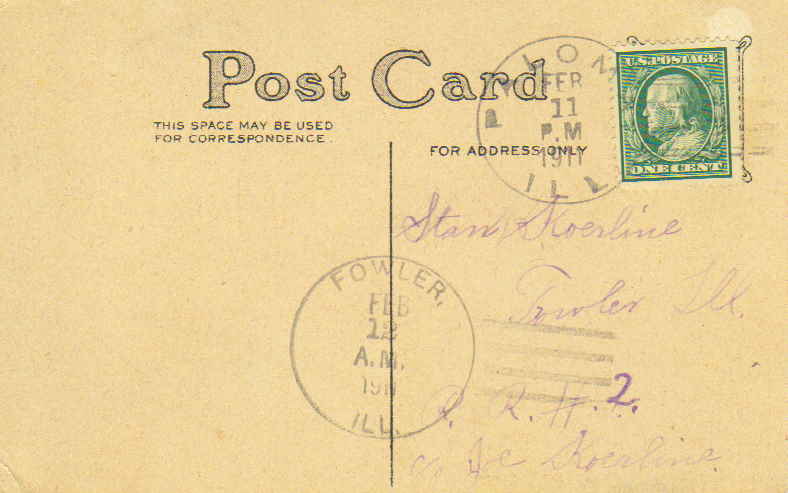 Post Card
THIS SPACE MAY BE USED
FOR CORRESPONDENCE.
FOR ADDRESS ONLY
PALOMA
FEB
11
P.M
1911
ILL
U.S. POSTAGE
ONE CENT
Stan Koerline
Fowler Ill.
R. R. #. 2.
c/o Joe Koerline
FOWLER,
FEB
12
A.M.
1911
ILL.